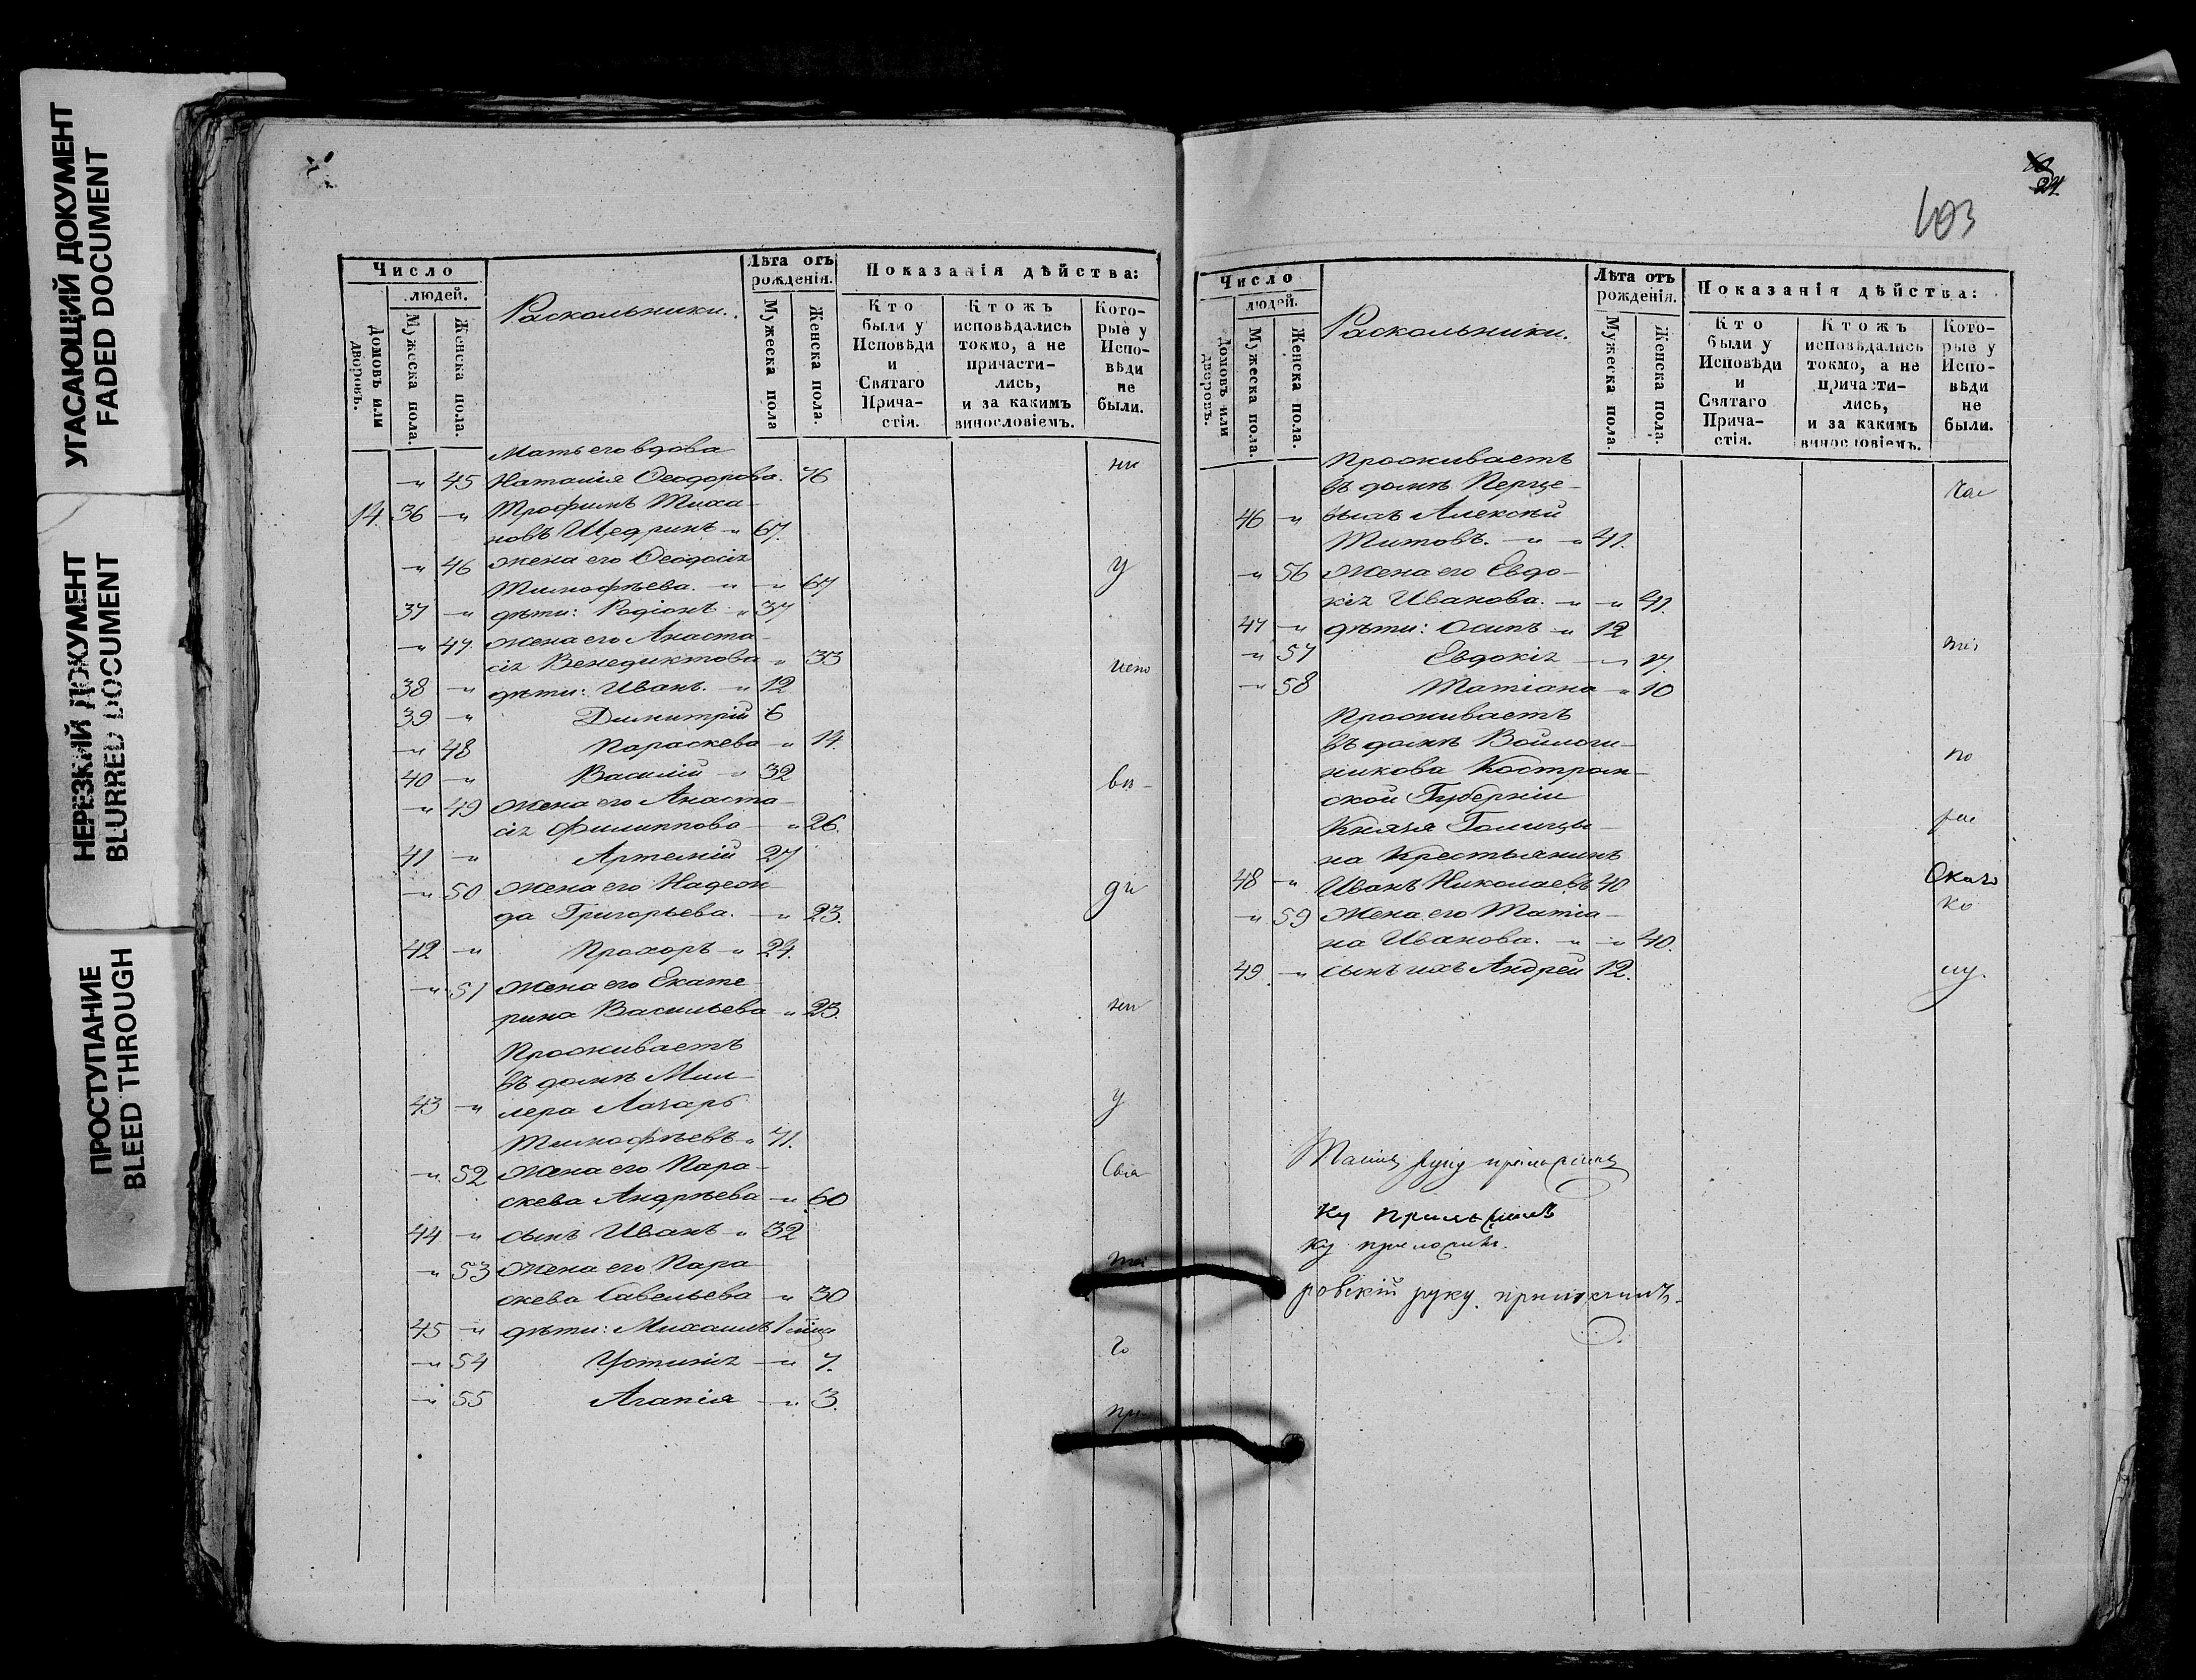 УГАСАЮЩИЙ ДОКУМЕНТ
FADED DOCUMENT
НЕРЕЗКИЙ ДОКУМЕНТ
BLURRED DOCUMENT
ПРОСТУПАНИЕ
BLEED THROUGH
Число
людей.
Домовъ или дворовъ.
Мужеска пола.
Женска пола.
Раскольники.
Лѣта отъ рожденія.
Мужеска пола
Женска пола.
Показанія дѣйства:
Кто были у Исповѣди и Святаго Прича-стія.
Ктожъ исповѣдались токмо, а не причасти-лись, и за какимъ винословіемъ.
Кото-рые у Испо-вѣди не были.
Мать его вдова
" 45 Наталія Ѳеодорова. 76 ни
14 36 " Трофимъ Тиха-
новъ Щедринъ " 67.
" 46 жена его Ѳеодосія у
Тимофѣева. " " 67
37 " дѣти: Родіонъ " 37
" 47 жена его Анаста-
сія Венедиктова " 33 испо
38 " дѣти: Иванъ. " 12
39 " Димитрій 6
" 48 Параскева " 14
40 " Василій " 32 вѣ-
" 49 жена его Анаста-
сія Филиппова " 26.
41 " Артемій 27
" 50 жена его Надеж- ди
да Григорьева. " 23.
42 " Прохоръ " 24.
" 51 жена его Екате-
рина Васильева " 23. ни
Проживаетъ
въ домѣ Мил-
43 " лера Лазарь у
Тимофѣевъ " 71.
" 52 жена его Пара- Свя
скева Андрѣева " 60
44 " сынъ Иванъ " 32
" 53 жена его Пара- та
скева Савельева " 30
45 " дѣти: Михаилъ 1
" 54 Устинія " 7. го
" 55 Агапія " 3.
при
24
103
Число
людей.
Домовъ или дворовъ.
Мужеска пола.
Женска пола.
Раскольники.
Лѣта отъ рожденія.
Мужеска пола
Женска пола.
Показанія дѣйства:
Кто были у Исповѣди и Святаго Прича-стія.
Ктожъ исповѣдались токмо, а не причасти-лись, и за какимъ винословіемъ.
Кото-рые у Испо-вѣди не были.
Проживаетъ
въ домѣ
46 " Алексѣй ча
Титовъ. " " 41.
" 56 жена его Евдо-
кія Иванова. " " 41.
47 " дѣти: Осипъ " 12
" 57 Евдокія " 17. тія
" 58 Татіана " 10
Проживаетъ
въ домѣ Войлош-
никова Костром- по
ской Губерніи
Князя Голицы- рас
на Крестьянинъ
48 " Иванъ Николаевъ 40
" 59 жена его Татіа- ко
на Иванова. " " 40.
49 " сынъ ихъ Андрей 12.
руку приложилъ
ку приложилъ
ку приложилъ.
ровскій руку приложилъ.